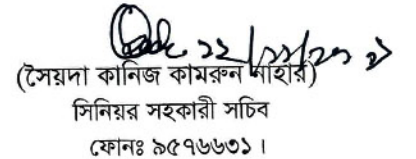 (সৈয়দা কানিজ কামরুন নাহার)
সিনিয়র সহকারী সচিব
ফোনঃ ৯৫৭৬৬৩১।